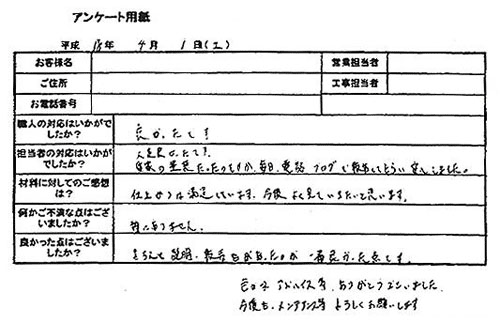 アンケート用紙
平成 18年 4月 1日(土)
お客様名
営業担当者
ご住所
工事担当者
お電話番号
職人の対応はいかがで
したか？
良かったです
担当者の対応はいかが
でしたか？
大変良かったです。
毎日、電話 ブログで報告してもらい安心しました。
材料に対してのご感想
は？
仕上がりは満足しています。今後よく見ていきたいと思います。
何かご不満な点はござ
いましたか？
特にありません。
良かった点はございま
したか？
きちんと説明、報告があったのが一番良かった点です。
アドバイス等、ありがとうございました
今後も、メンテナンス等よろしくお願いします